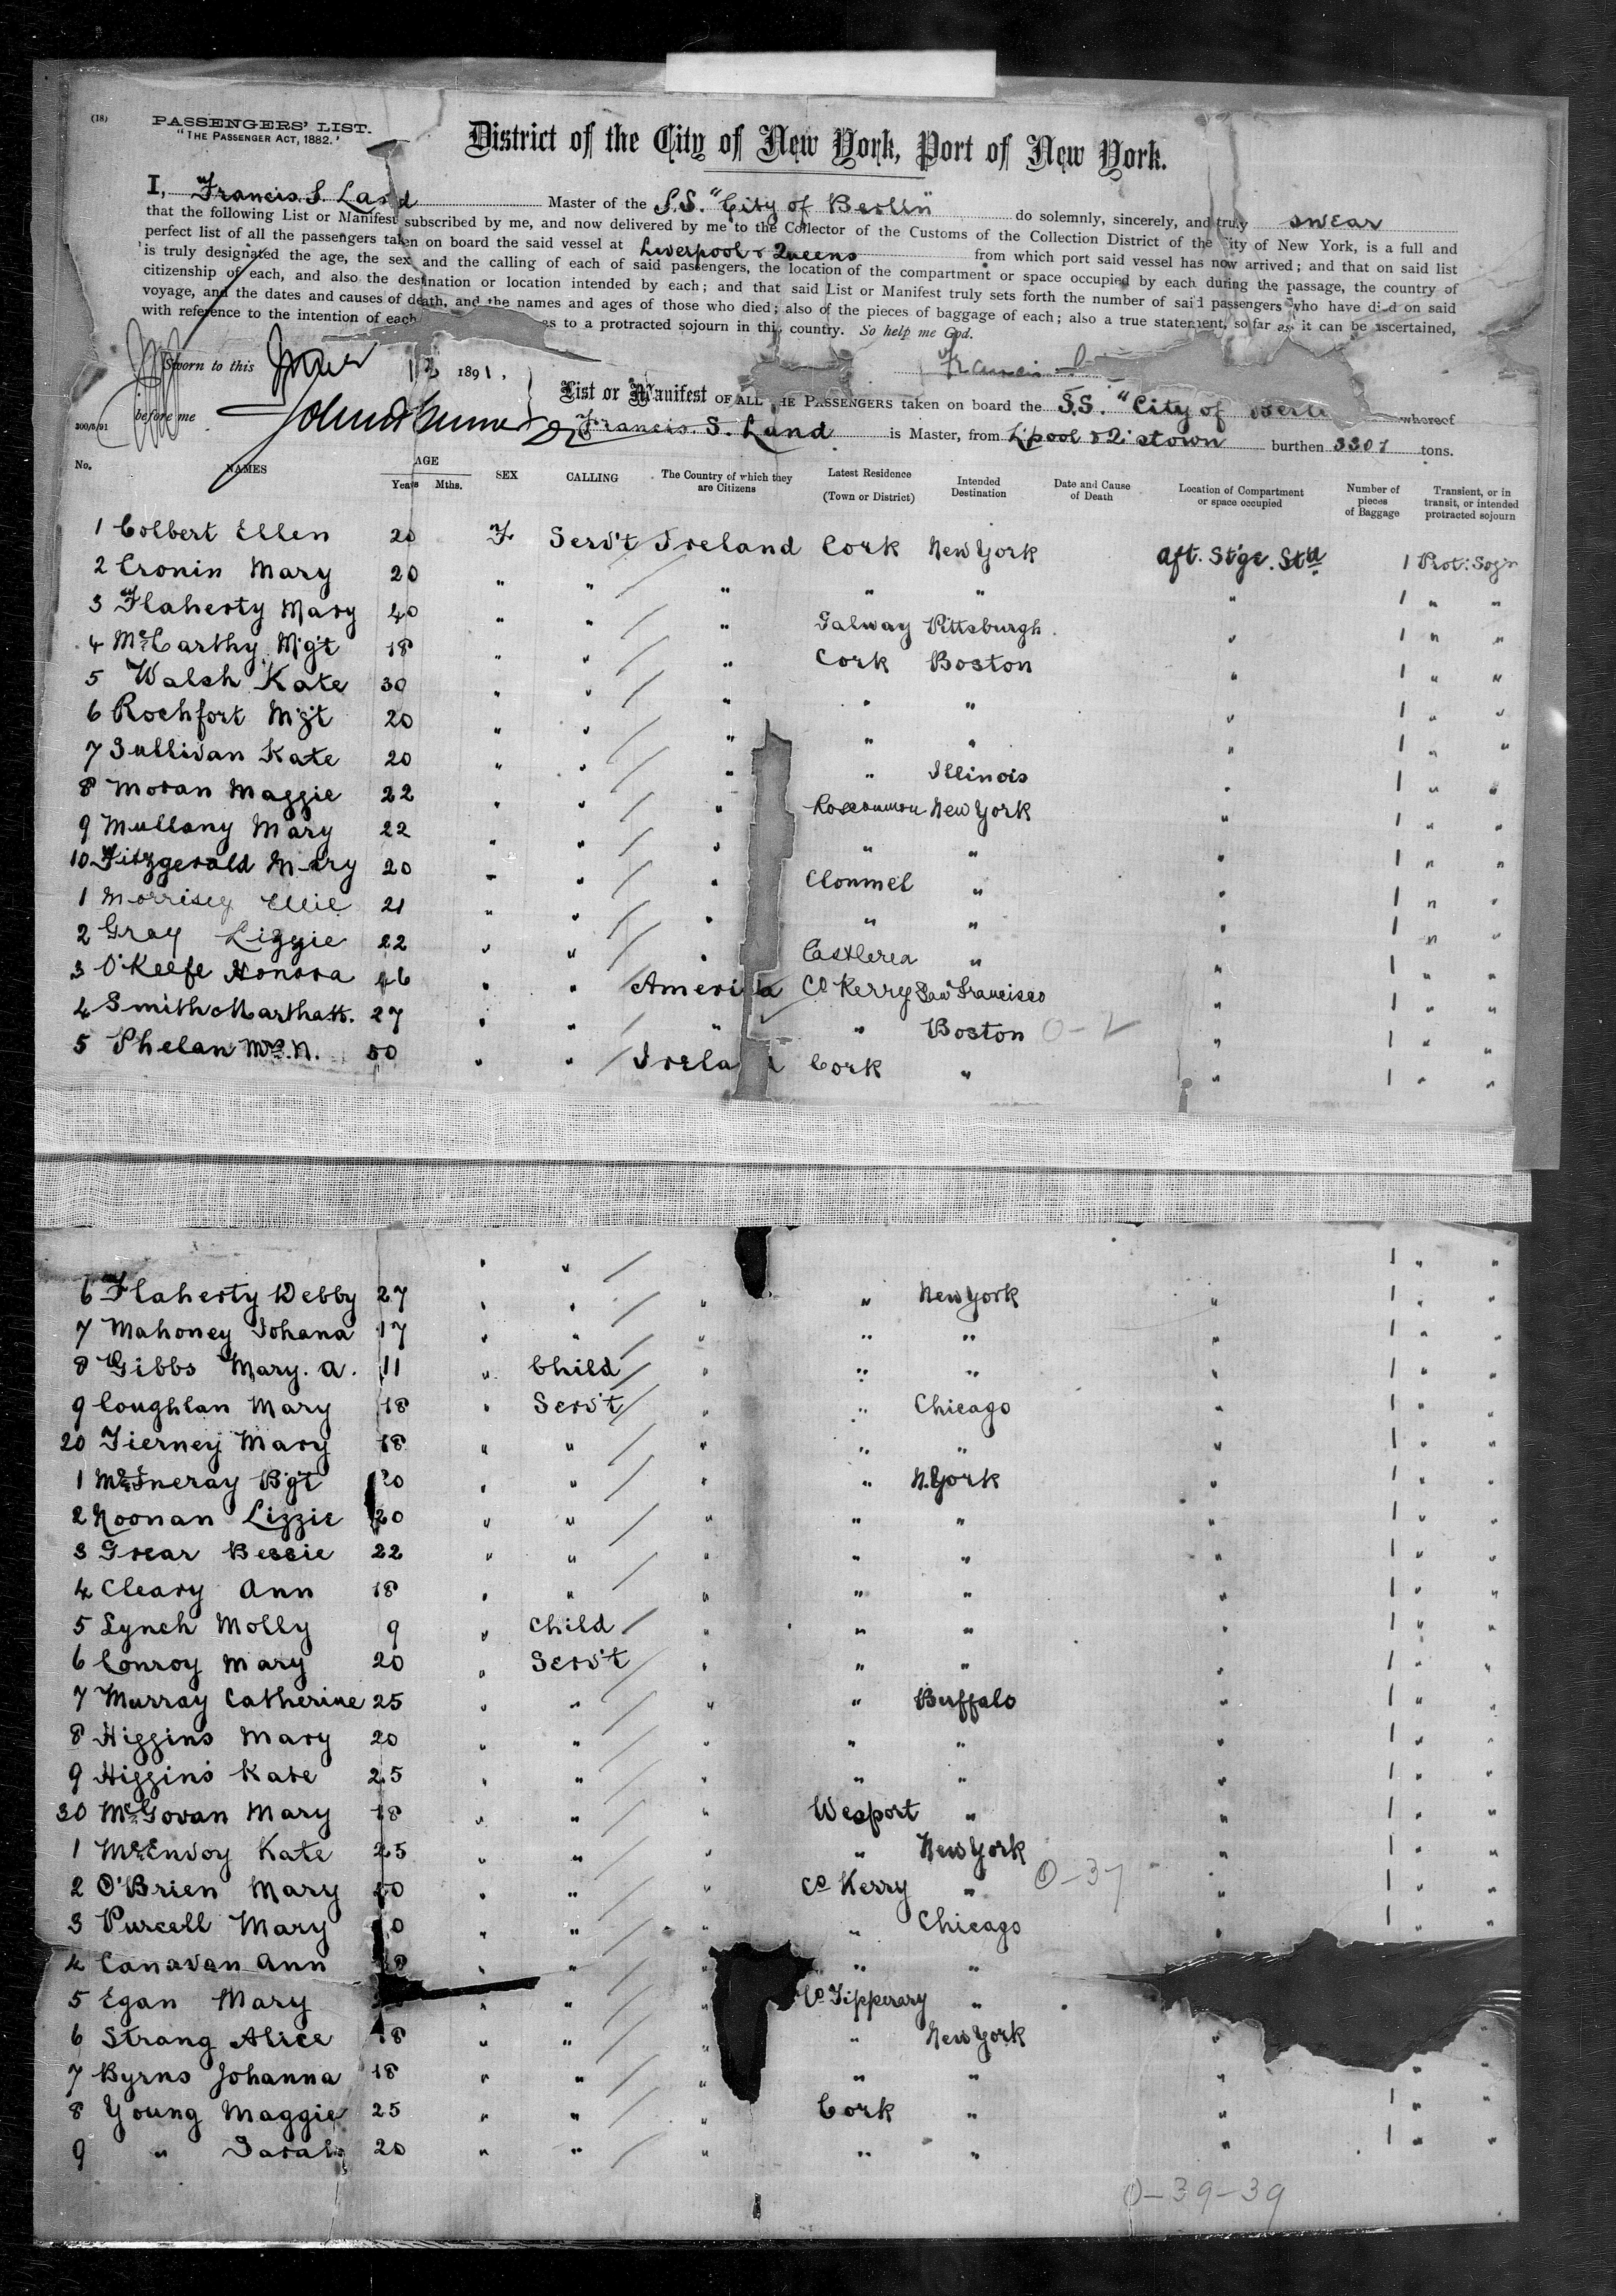 (18)
PASSENGERS' LIST.
"THE PASSENGER ACT, 1882."
District of the City of New York, Port of New York.
I, Francis S. Land Master of the S.S. "City of Berlin" do solemnly, sincerely, and truly swear
that the following List or Manifest subscribed by me, and now delivered by me to the Collector of the Customs of the Collection District of the City of New York, is a full and
perfect list of all the passengers taken on board the said vessel at Liverpool & Queens from which port said vessel has now arrived; and that on said list
is truly designated the age, the sex and the calling of each of said passengers, the location of the compartment or space occupied by each during the passage, the country of
citizenship of each, and also the destination or location intended by each; and that said List or Manifest truly sets forth the number of said passengers who have died on said
voyage, and the dates and causes of death, and the names and ages of those who died; also of the pieces of baggage of each; also a true statement, so far as it can be ascertained,
with reference to the intention of each es to a protracted sojourn in this country. So help me God.
Sworn to this 1891, Francis
before me
List or Manifest OF ALL THE PASSENGERS taken on board the S.S. "City of Berli whereof
300/3/91 Francis S. Land is Master, from L'pool & Q'stown burthen 3307 tons.
No. NAMES AGE Years Mths. SEX CALLING The Country of which they are Citizens Latest Residence (Town or District) Intended Destination Date and Cause of Death Location of Compartment or space occupied Number of pieces of Baggage Transient, or in transit, or intended protracted sojourn
1 Colbert Ellen 20 F Serv't Ireland Cork New York Aft. Stge. Stb 1 Prot: Sog'n
2 Cronin Mary 20 " " / " " " " 1 " "
3 Flaherty Mary 40 " " / " Galway Pittsburgh " 1 " "
4 McCarthy Mgt 18 " " / " Cork Boston " 1 " "
5 Walsh Kate 30 " " / " " " " 1 " "
6 Rochfort Mgt 20 " " / " " " " 1 " "
7 Sullivan Kate 20 " " / " " Illinois " 1 " "
8 Moran Maggie 22 " " / " Roscommon New York " 1 " "
9 Mullany Mary 22 " " / " " " " 1 " "
10 Fitzgerald Mary 20 " " / " Clonmel " " 1 " "
1 Morrisey Ellie 21 " " / " " " " 1 " "
2 Gray Lizzie 22 " " / " Castlerea " " 1 " "
3 O'Keefe Honora 46 " " America Co Kerry San Francisco " 1 " "
4 Smith Martha H. 27 " " / " " Boston " 1 " "
5 Phelan Mrs. N. 50 " " / Irela Cork " " 1 " "
" " / 1 " "
6 Flaherty Debby 27 " " / " " New York " 1 " "
7 Mahoney Johana 17 " " / " " " " 1 " "
8 Gibbs Mary. A. 11 " Child / " " " " 1 " "
9 Coughlan Mary 18 " Serv't / " " Chicago " 1 " "
20 Tierney Mary 18 " " / " " " " 1 " "
1 McIneray Bgt 20 " " / " " N.York " 1 " "
2 Noonan Lizzie 20 " " / " " " " 1 " "
3 Grear Bessie 22 " " / " " " " 1 " "
4 Cleary Ann 18 " " / " " " " 1 " "
5 Lynch Molly 9 " Child / " " " " 1 " "
6 Conroy Mary 20 " Serv't / " " " " 1 " "
7 Murray Catherine 25 " " / " " Buffalo " 1 " "
8 Higgins Mary 20 " " / " " " " 1 " "
9 Higgins Kate 25 " " / " " " " 1 " "
30 McGovan Mary 18 " " / " Wesport " " 1 " "
1 McEnvoy Kate 25 " " / " " New York " 1 " "
2 O'Brien Mary " " / " Co Kerry " 0-37 " 1 " "
3 Purcell Mary " " / " " Chicago " 1 " "
4 Canavan Ann " " / " " "
5 Egan Mary " " / " Co Tipperary "
6 Strang Alice 18 " " / " New York " "
7 Byrns Johanna 18 " " / " " " " "
8 Young Maggie 25 " " / " Cork " " 1 " "
9 " Sarah 20 " " / " " " " 1 " "
0-39-39